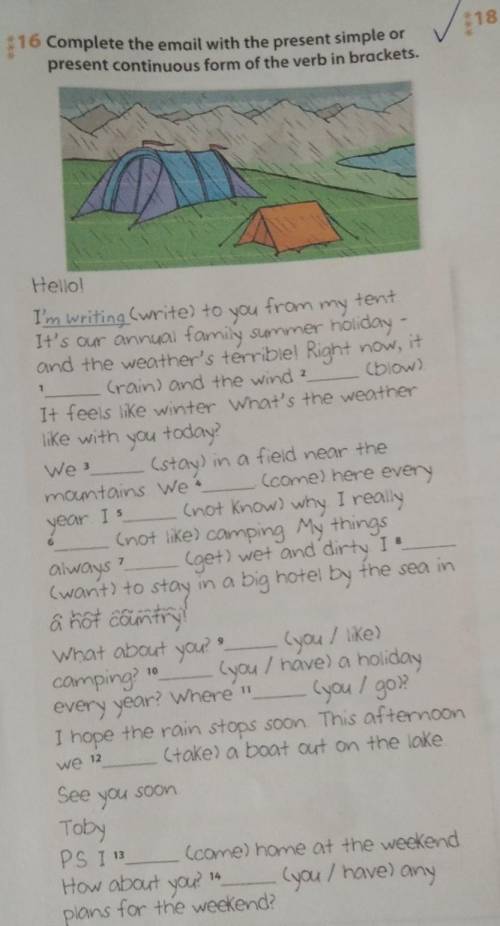 16 Complete the email with the present simple or
present continuous form of the verb in brackets.
18
Hello!
I'm writing (write) to you from my tent
It's our annual family summer holiday -
and the weather's terrible! Right now, it
1______ (rain) and the wind 2______ (blow)
It feels like winter What's the weather
like with you today?
We 3______ (stay) in a field near the
mountains We 4______ (come) here every
year I 5______ (not know) why I really
6______ (not like) camping My things
always 7______ (get) wet and dirty I 8______
(want) to stay in a big hotel by the sea in
a hot country!
What about you? 9______ (you / like)
camping? 10______ (you / have) a holiday
every year? Where 11______ (you / go)?
I hope the rain stops soon This afternoon
we 12______ (take) a boat out on the lake
See you soon
Toby
PS I 13______ (come) home at the weekend
How about you? 14______ (you / have) any
plans for the weekend?